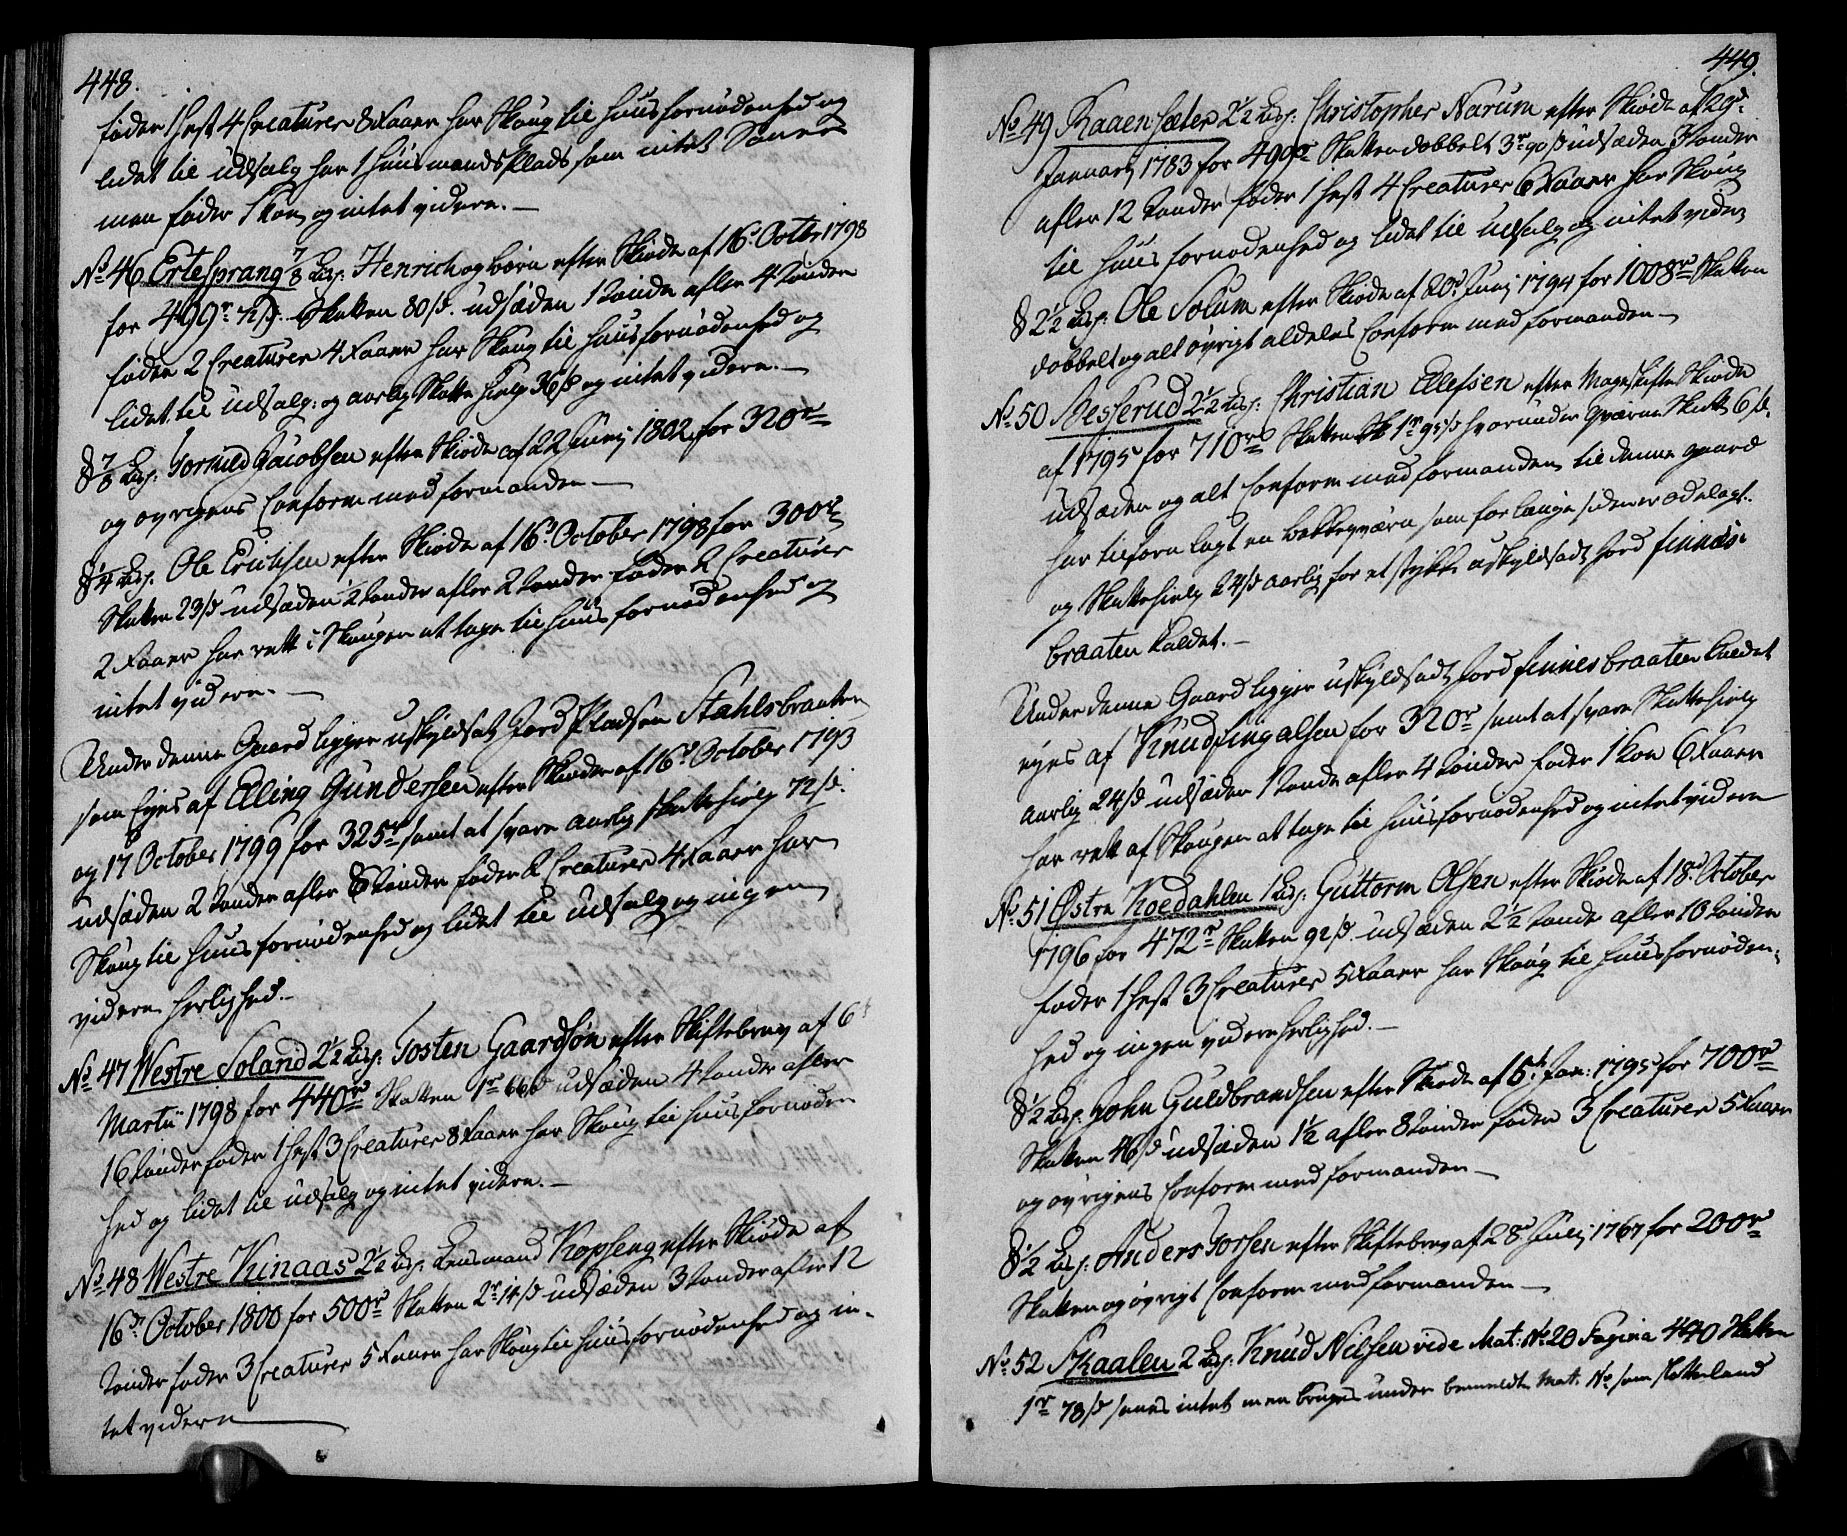 448.
føder 1 Hest 4 Creaturer 8 Faarer har Skoug til Huusfornødenhed og
lidet til udsalg har 1 Huusmands Plads som intet Saaer
men føder 1 Koe, og intet videre. —
No 46 Ertesprang 7/8 Lisp: Henrich og Børn efter Skiøde af 16d Octbr 1798
for 499r 72 s. Skatten 80 s. udsæden 1 Tønde afler 4 Tønder
føder 2 Creaturer 4 Faarer har Skoug til Huusfornødenhed og
lidet til udsalg: og aarlig Skatte hielp 36 s og intet videre. —
& 7/8 Lisp: Torkild Jacobsen efter Skiøde af 22 Junij 1802 for 320 rd
og øvrigens Conform med formanden —
& 1/4 Lisp: Ole Erichsen efter Skiøde af 16d October 1798 for 300r
Skatten 23 s udsæden 1/2 Tønder afler 2 Tønder føder 2 Creaturer
2 Faarer har rett i Skougen at tage til Huusfornødenhed og
intet videre. —
Under denne Gaard ligger uskyldsatz Jord Pladsen Stahlsbraaten
som Eyes af Elling Gundersen efter Skiøder af 16d October 1793
og 17 October 1799 for 325r samt at svare aarlig skattehielp 72 s.
udsæden 2 Tønder afler 8 Tønder føder 2 Creaturer 4 Faarer har
Skoug til Huusfornødenhed og lidet til udsalg og ingen
videre herlighed. —
No 47 Westre Soland 2 1/2 Lisp: Tosten Gaardsøn efter Skiftebrev af 6t
Martii 1798 for 440rd Skatten 1r 66 s udsæden 4 Tønder afler
16 Tønder føder 1 Hest 3 Creaturer 8 Faarer har Skoug til Huusfornøden
hed og lidet til udsalg og intet videre. —
No 48 Westre Kinaas 2 1/2 Lisp: Lensmand Kopseng efter Skiøde af
16d October 1800 for 500rd Skatten 2r 14 s udsæden 3 Tønder afler 12
Tønder føder 3 Creaturer 5 Faarer har Skoug til Huusfornødenhed og in-
tet videre —
449.
No 49 Kaaensæter 2 1/2 Lisp: Christopher Narum efter Skiøde af 29d
Januarij 1783 for 499rd Skatten dobbelt 3r 90 s udsæden 3 Tønder
afler 12 Tønder føder 1 Hest 4 Creaturer 6 Faarer har Skoug
til Huusfornødenhed og lidet til udsalg og intet videre
& 2 1/2 Lisp: Ole Solum efter Skiøde af 20d Junij 1794 for 1008rd Skatten
dobbelt og alt øvrigt aldeles Conform med formanden —
No 50 Besserud 2 1/2 Lisp: Christian Ellefsen efter Mageskifte Skiøde
af 1795 for 710rd Skatten 1r 95 s hvorunder qværne Skatt 6 s.
udsæden og alt Conform med formanden, til denne gaard
har tilforn lagt en bekkeqværn som for længe siden er ødelagt.
og Skattehielp 24 s aarlig for et stykke uskyldsatz Jord finnes-
braaten kaldet. —
Under denne Gaard ligger uskyldsatz Jord finnesbraaten kaldet
eyes af Knud Jngalsen for 320r samt at svare Skattehielp
aarlig 24 s udsæden 1 Tønde afler 4 Tønder føder 1 Koe 6 Faarer
har rett af Skougen at tage til Huusfornødenhed og intet videre
No 51 Østre Koedahlen 1 Lisp: Guttorm Olsen efter Skiøde af 18d October
1796 for 472r Skatten 92 s. udsæden 2 1/2 Tønde afler 10 Tønder
føder 1 Hest 3 Creaturer 5 Faarer har Skoug til Huusfornøden-
hed og ingen videre herlighed. —
& 1/2 Lisp: John Guldbrandsen efter Skiøde af 5t Jan: 1795 for 700rd
Skatten 46 s udsæden 1 1/2 afler 8 Tønder føder 3 Creaturer 5 Faarer
og øvrigens Conform med formanden —
& 1/2 Lisp: Anders Torsen efter Skiftebrev af 28d Julij 1767 for 200rd
Skatten og øvrigt Conform med formanden —
No 52 Skaalen 2 Lisp: Knud Nilsen vide Mat: No 20 Pagina 440 Skatten
1r 78 s saaes intet men bruges under bemeldte Mat. No som sletteland